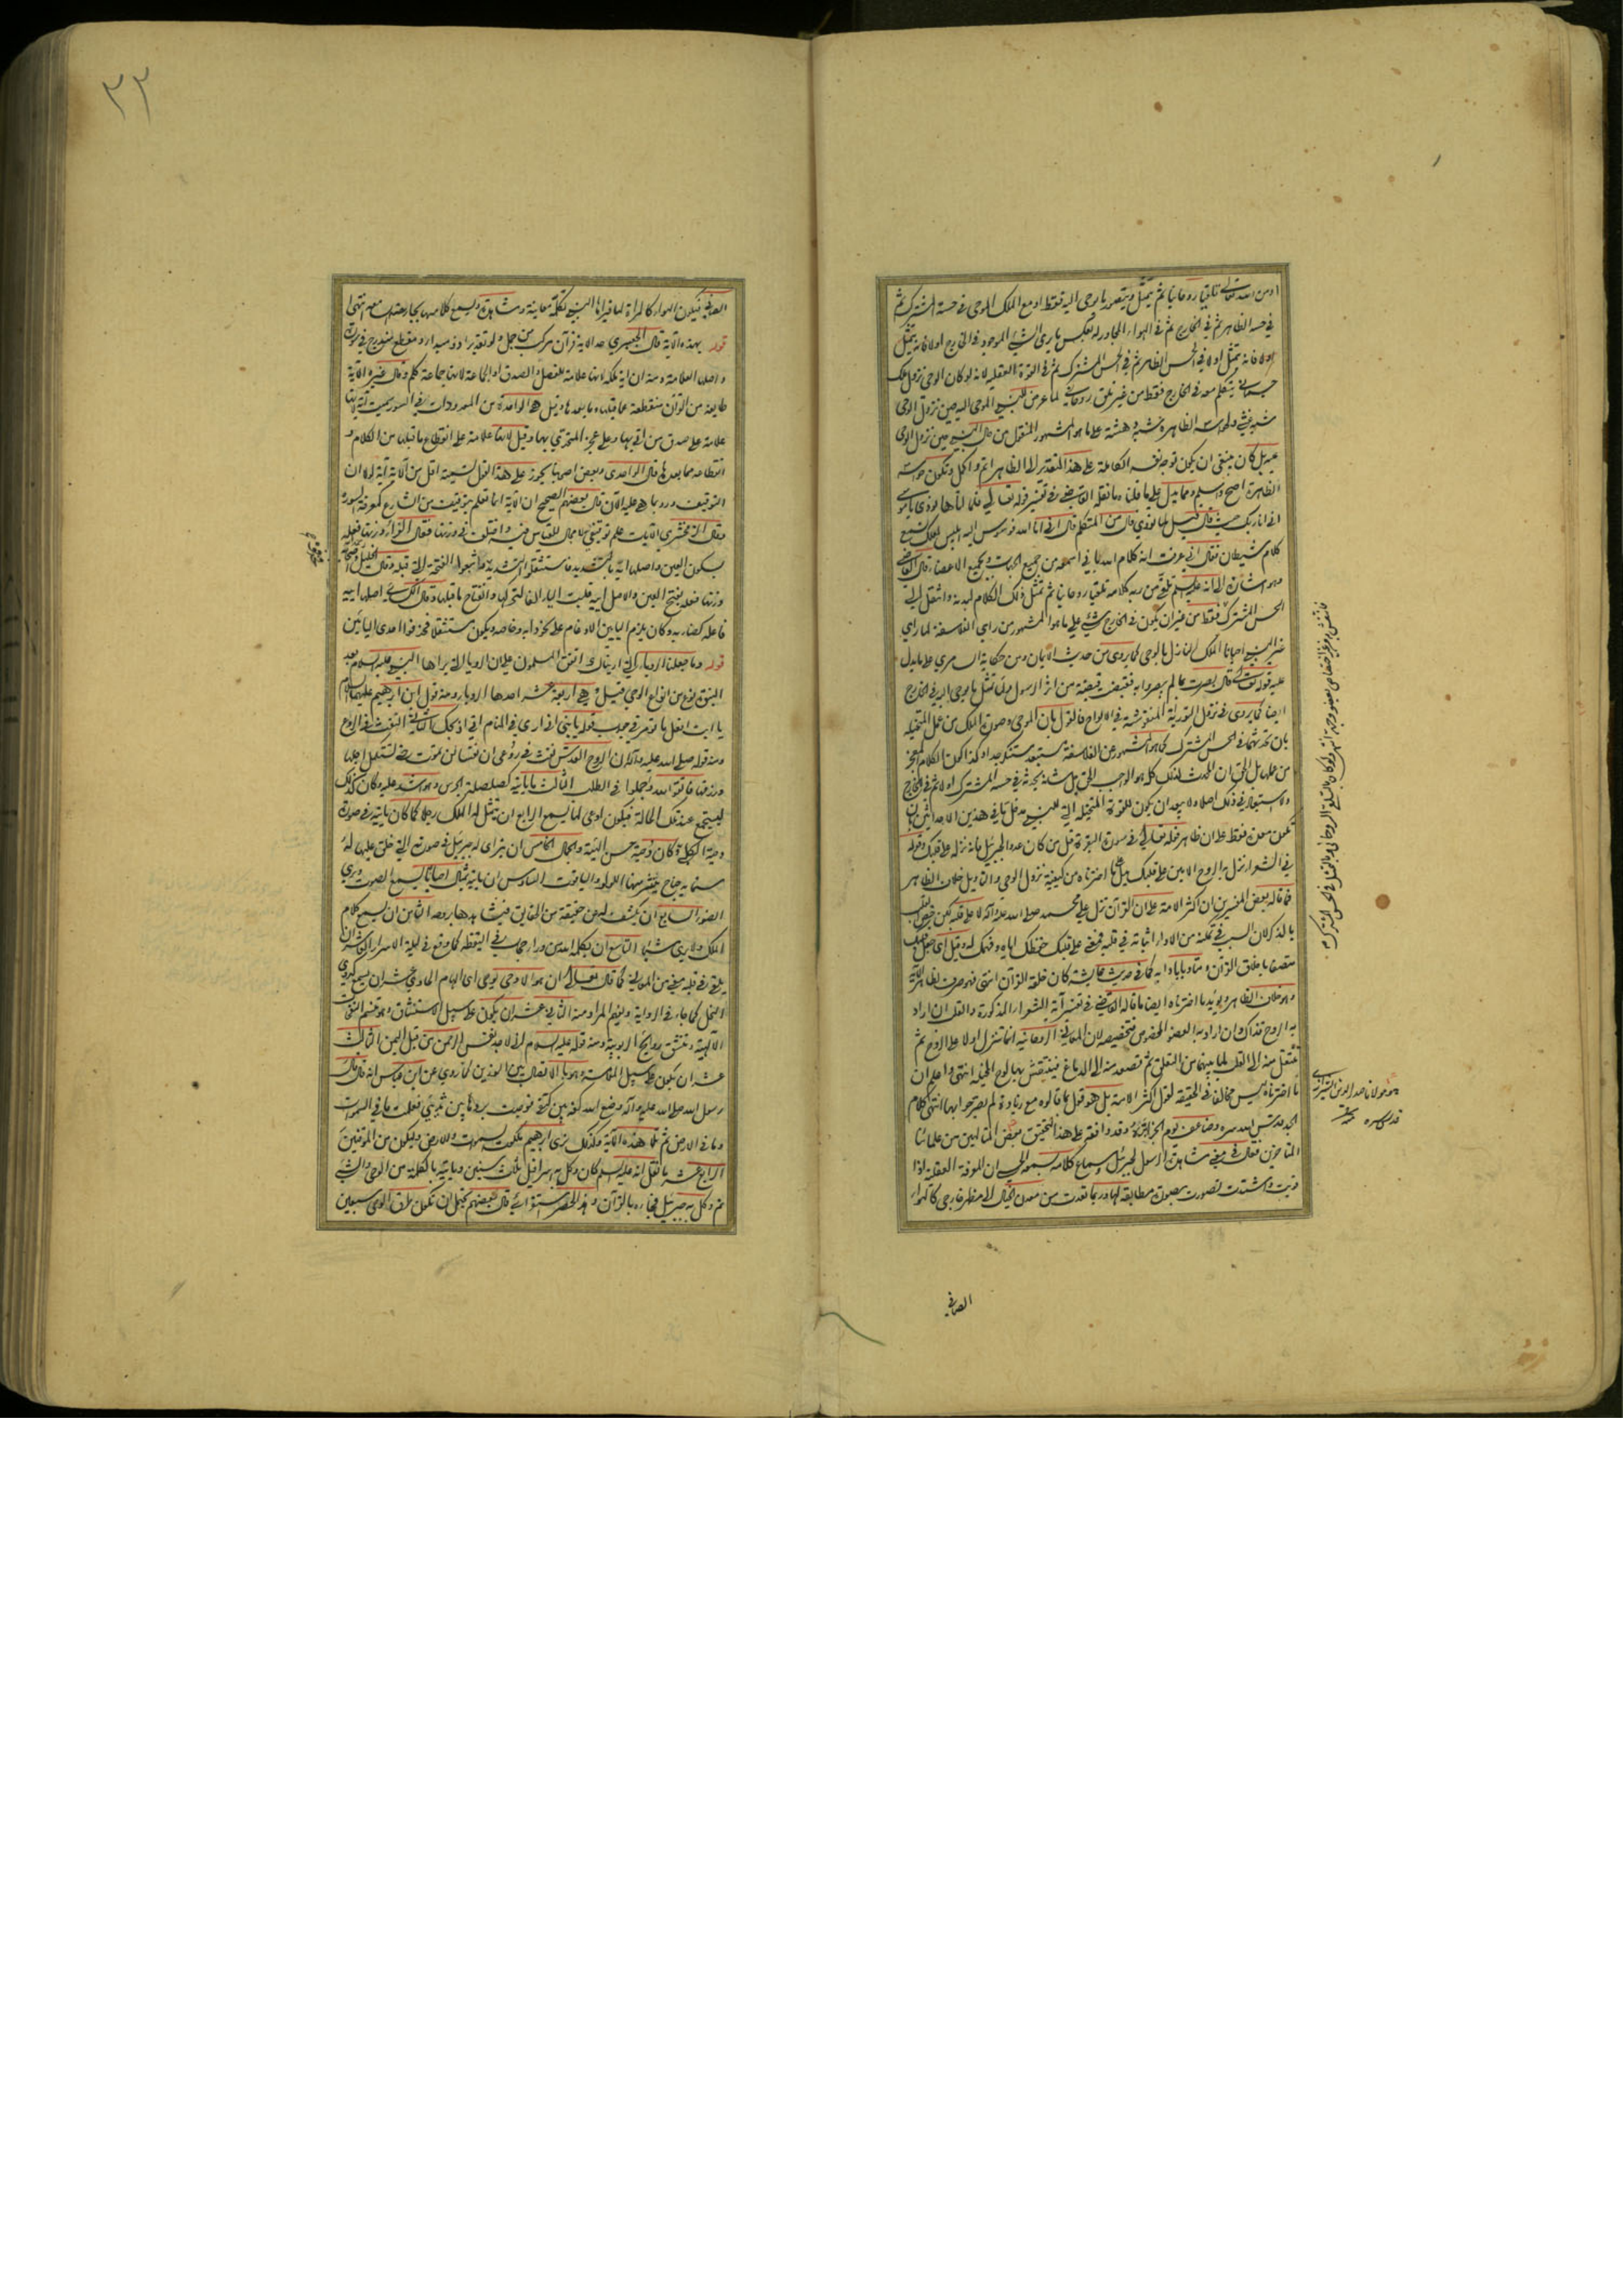 او من الله تعالى تلقيا روحانيا ثم يتمثل ويتصور ما يوحى اليه فقط او مع الملك الموحى في حسه المشترك ثم
في حسه الظاهر ثم في الخارج ثم في الهواء المجاور له بعكس ما يرى الشيء الموجود في الخارج اولا فانه يتمثل
اولا فانه يتمثل اولا في الحس الظاهر ثم في الحس المشترك ثم في القوة العقلية لانه لو كان الوحي نزول ملك
جسماني يتكلم معه في الخارج فقط من غير تلق روحاني لما عرض للنبي الموحى اليه حين نزول الوحي
شبه غشي ولحواسه الظاهرة شبه دهشة على ما هو المشهور المنقول من حال النبي حين نزول الوحي
عليه بل كان ينبغي ان يكون توجه نفسه الكاملة على هذا التقدير الى الظاهر اتم واكمل وتكون حواسه
الظاهرة اصح واسلم ومما يدل على ما قلنا ما نقله القاضي في تفسير قوله تعالى فلما اتاها نودي يا موسى
اني انا ربك حيث قال قيل لما نودي قال من المتكلم قال اني انا الله فوسوس اليه ابليس لعلك تسمع
كلام شيطان فقال اني عرفت انه كلام الله باني اسمعه من جميع الجهات وبجميع الاعضاء قال القاضي
وهو اشارة الى انه عليه السلم تلقى من ربه كلامه تلقيا روحانيا ثم تمثل ذلك الكلام لبدنه وانتقل الى
الحس المشترك فقط من غير ان يكون في الخارج شيء على ما هو المشهور من راي الفلاسفة لما راى
غير النبي احيانا الملك النازل بالوحي كما روى من حديث الايمان ومن حكاية السامري على ما يدل
عليه قوله تعالى قال بصرت بما لم يبصروا به فقبضت قبضة من اثر الرسول ولما تمثل ما يوحى اليه في الخارج
ايضا كما يروى في نزول التورية المنقوشة في الالواح فالقول بان الموحى وصوت الملك من عمل المتخيلة
من عملها بل الحق ان المحدث لذلك كله هو الواجب الحق جل شانه يحدثه في حسه المشترك اولا ثم في الخارج
ولا استبعاد في ذلك اصلا ولا يبعد ان يكون للقوة المتخيلة التي للنبي مدخل ما في هذين الاحداثين بان
تكون معدة فقط على ان ظاهر قوله تعالى في سورة البقرة قل من كان عدوا لجبريل فانه نزله على قلبك وقوله
في الشعراء نزل به الروح الامين على قلبك يدل على ما اخترناه من كيفية نزول الوحي والتاويل خلاف الظاهر
فما قاله بعض المفسرين ان اكثر الامة على ان القرآن نزل على محمد صلى الله عليه وآله لا على قلبه لكن خص القلب
بالذكر لان السبب في تمكنه من الاداء اثباته في قلبه فمعنى على قلبك حفظك اياه وفهمك له وقيل اي جعل قلبك
متصفا باخلاق القرآن ومتادبا بآدابه كما في حديث عايشة كان خلقه القرآن انتهى فهو صرف الظاهر
وهو خلاف الظاهر ويؤيد ما اخترناه ايضا ما قاله القاضي في تفسير آية الشعراء المذكورة والقلب ان اراد
به الروح فذاك وان اراد به العضو المخصوص فتخصيصه لان المعاني الروحانية انما تنزل اولا على الروح ثم
تنتقل منه الى القلب لما بينهما من التعلق ثم تصعد منه الى الدماغ فينتقش بها لوح المخيلة انتهى واعلم ان
ما اخترناه ليس مخالفا في الحقيقة لقول اكثر الامة بل هو قول بما قالوه مع زيادة لم يصرحوا بها انتهى كلام
الجد قدس الله سره وضاعف يوم الجزاء وقد وافقه على هذا التحقيق بعض المتالهين من علمائنا
المتاخرين فقال في معنى مشاهدة الرسول لجبرئيل وسماع كلامه بسمعه الحسي ان القوة العقلية اذا
قويت واشتدت تصورت بصورة مطابقة لها وربما تعدت من معدن الخيال الى مظهر خارجي كالهواء
الصافي
هو مولانا صدر الدين الشيرازي
قدس سره منه
الصافي فيكون الهواء كالمرآة لها فيراها النبي بكلمة معاينة ومشاهدة ويسمع كلامهما بجارحته السامعه انتهى
قوله بهذه الآية قال الجعبري حد الاية قرآن مركب من جمل ولو تقديرا ذو مبدأ ومقطع مندرج في سورة
واصلها العلامة ومنه ان اية ملكه لانها علامة للفصل والصدق او الجماعة لانها جماعة كلم وقال غيره الآية
طايفة من القرآن منقطعة عما قبلها وما بعدها وقيل هي الواحدة من المعدودات في السور سميت به لانها
علامة على صدق من اتى بها وعلى عجز المتحدى بها وقيل لانها علامة على انقطاع ما قبلها من الكلام و
انقطاعه مما بعدها قال الواحدي وبعض اصحابنا يجوز على هذا القول تسمية اقل من الآية آية لولا ان
التوقيف ورد بما هي عليه الآن قال بعضهم الصحيح ان الآية انما تعلم بتوقيف من الشارع كمعرفة السورة
وقال الزمخشري الآيات علم توقيفي لا مجال للقياس فيه واختلف في وزنها فقال الفراء وزنها فعلة
بسكون العين واصلها اية بالتشديد فاستثقلوا التشديد فاتبعوه الفتحة التي قبله وقال الخليل واصحابه
وزنها فعلة بفتح العين والاصل اييه قلبت الياء الفا لتحركها وانفتاح ما قبلها وقال الكسائي اصلها اييه
فاعلة كضاربه وكان يلزم اليايين الادغام على نحو دابه وخاصه ويكون مستثقلا فحذفوا احدى اليائين
قوله وما جعلنا الرؤيا التي اريناك اتفق المسلمون على ان الرؤيا التي يراها النبي عليه السلام بعد
البعثة نوع من انواع الوحي قيل وهي اربعة عشر احدها الرؤيا ومنه قول ابن ابرهيم عليهما السلام
يا ابت افعل ما تؤمر في جواب قوله يا بني اني ارى في المنام اني اذبحك الثاني النفث في الروع
ومنه قوله صلى الله عليه وآله ان الروح القدس نفث في روعي ان نفسا لن تموت حتى تستكمل اجلها
ورزقها فاتقوا الله واجملوا في الطلب الثالث ما ياتيه كصلصلة الجرس وهو اشد عليه وكان كذلك
ليستجمع عند تلك الحالة فيكون اوعى لما يسمع الرابع ان يتمثل له الملك رجلا كما كان ياتيه في صورة
دحية الكلبي وكان دحية حسن الهيئة والجمال الخامس ان يتراى له جبرئيل في صورته التي خلق عليها له
ستمايه جناح ينتشر منها اللؤلؤ والياقوت السادس ان ياتيه بمثال احيانا يسمع الصوت ويرى
الضوء السابع ان يكشف له عن حقيقة من الحقايق فيشاهدها بروحه الثامن ان يسمع كلام
الملك ولا يرى شيئا التاسع ان يكلمه الله من وراء حجاب في اليقظة كما وقع في ليلة الاسراء العاشر ان
يلقى في قلبه معنى من المعاني كما قال تعالى ان هو الا وحي يوحى اي الهام الحادي عشر ان يسمع كدوي
النحل كما جاء في الرواية ويفهم المراد منه الثاني عشر ان يكون على سبيل الاستنشاق وهو تنسم النفحات
الآلهية وتنشق روايح الربوبية ومنه قوله عليه السلام اني لاجد نفس الرحمن من قبل اليمن الثالث
عشر ان يكون على سبيل الملامسة وهو بالاتصال بين النورين كما روي عن ابن عباس انه قال قال
رسول الله صلى الله عليه وآله وضع الله كفه بين كتفي فوجدت بردها بين ثديي فعلمت ما في السموات
وما في الارض ثم تلا هذه الآية وكذلك نرى ابرهيم ملكوت السموات والارض وليكون من الموقنين
الرابع عشر ما نقل انه عليه السلم كان وكل به اسرافيل ثلث سنين وياتيه بالكلمة من الوحي والشيء
ثم وكل به جبرئيل فجاءه بالقرآن وهذا الحصر استقرائي قال بعضهم يحتمل ان تكون طرق الوحي سبعين
٣٣